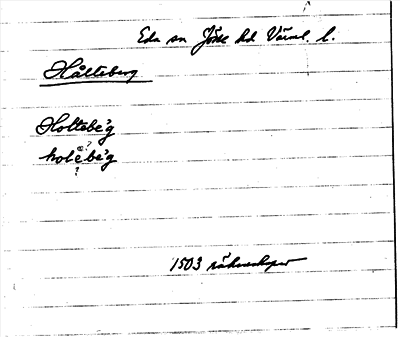 Eda sn Jösse hd Värml. l.
Hålteberg
Holtebe'g
holebe'g
?
?
1503 räkenskaper